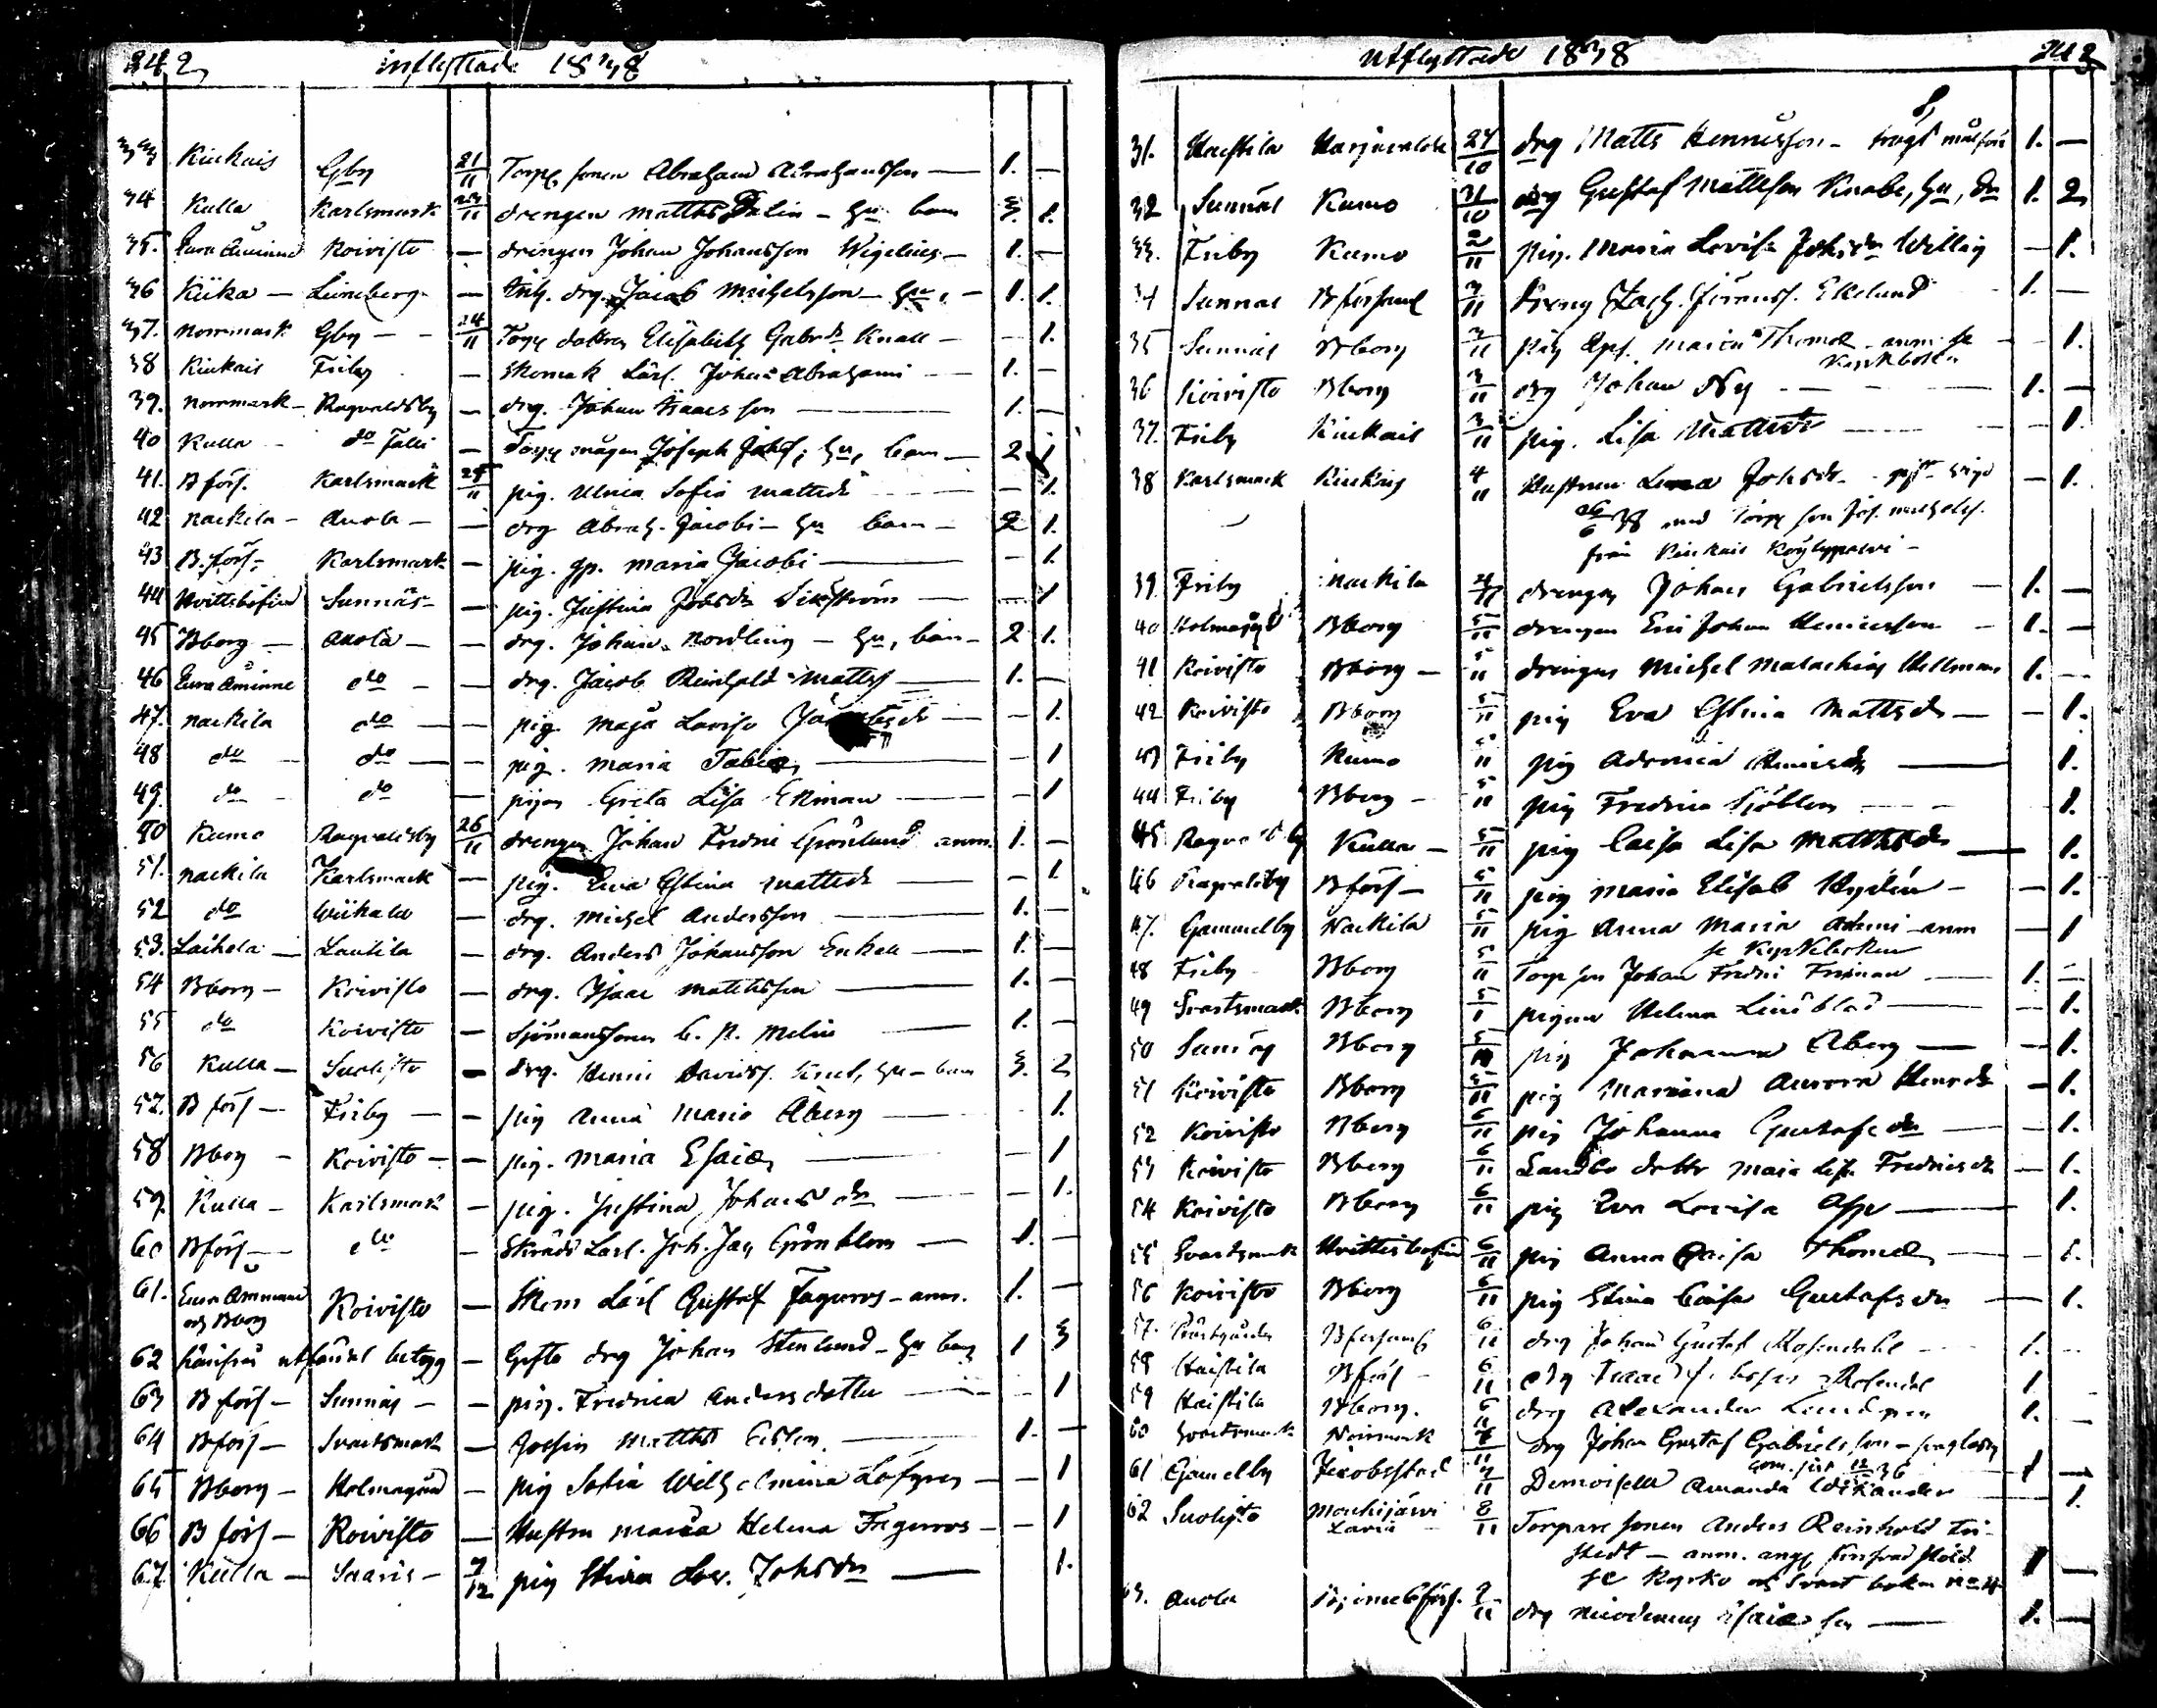 242
inflyttade 1838
33 Kiukais Gby 21/11 Torp. sonen Abraham Abrahamsson — 1. —
34 Kulla Karlsmark 23/11 drengen Matths Palin - hu barn 3. 1.
35. Eura Åminne Koivisto — drengen Johan Johansson Wigelius — 1. —
36 Kiika — Luneberg — drg. Jacob Michelsson — hu, — 1. 1.
37. Norrmark Gby — 24/11 Torp dottren Elisabeth Gabrdr Knall — — 1.
38 Kiukais Friby — Skomak Lärl. Johan Abrahami — 1. —
39. Norrmark — Ragvaldsby — drg. Johan Isacsson — 1. —
40 Kulla do — Torp mågen Joseph Johs; hu, barn — 2 1
41. Bförs. Karlsmark 25/11 pig. Ulrica Sofia Mattsdr — 1.
42 Nackila — Anola — — drg Abrah. Jacobi — hu barn — 2 1.
43 B.förs — Karlsmark — pig. gp. Maria Jacobi — — 1.
44 Hvittisbofjerd Sunnäs — — pig. Justina Johsdr Wikström — 1
45 Bborg — Anola — — drg. Johan Nordling — hu, barn — 2 1.
46 Eura Åminne do — — drg. Jacob Reinhold Matts — 1. —
47. Nackila do — — pig. Maja Lovisa — — 1.
48 do — do — — pig. Maria Tobiæ — 1
49. do — do — pigan Greta Lisa Ekman — — 1
50 Kumo Ragvaldsby 26/11 drengen Johan Fredric Grönlund anm. 1. —
51. Nackila Karlsmark — pig. Eva Stina Mattsdr — — 1
52 do Wiikala — drg. Michel Andersson — 1. —
53. Laihela — Lautila — drg. Anders Johansson Enkell — 1. —
54 Bborg — Koivisto — drg. Isaac Mattsson — 1. —
55 do Koivisto — Sjömanssonen C. N. Melin — 1. —
56 Kulla — Suolisto — drg. Henric Davidss. hu — barn 3. 2
57. B förs — Friby — — pig Anna Maria Åberg — 1.
58 Bborg — Koivisto — — pig. Maria Esaiæ — 1
59. Kulla — Karlsmark — pig. Justina Johansdr — — 1.
60 Bförs — do — Skrädd Lärl. Joh. Jac Grönblom — 1. —
61. Eura Åminne och Bborg Koivisto — Skom Lärl Gustaf Fagerros — anm. 1. —
62 betygg — Gifte drg Johan Stenlund — hu barn 1 3
63 B förs — Sunnäs — — pig. Fredrica Andersdotter — — 1
64 B förs — Svartsmark — Matths — 1. —
65 Bborg — Holmagård — pig Sofia Wilhelmina Löfgren — — 1
66 B förs — Koivisto — Hustru Maria Helena Fagerros — — 1
67. Kulla — Saaris — 7/12 pig Stina Lov. Johsdr — 1.
utflyttade 1838
243
31. Haistila Harjavalda 27/10 drg Matts Henricsson — 1. —
32 Sunnäs Kumo 31/10 drg Gustaf Mattsson Knabe, hu, dr 1. 2
33. Friby Kumo 2/11 pig. Maria Lovisa Johsdr Willig — 1.
34 Sunnäs Bförsaml 3/11 dreng Zach. Ekelund — 1. —
35 Sunnäs Bborg 3/11 pig Maria Thomæ — anm. se Kyrkboken — 1.
36 Koivisto Bborg 3/11 drg Johan Ny — 1. —
37. Friby Kiukais 3/11 pig. Lisa Mattsdr — 1.
38 Karlsmark Kiukais 4/11 Hustrun Lena Johsdr — — 1.
26/6 38 med Torp son Jos. Michels.
från Kiukais Köylypolvi —
39. Friby Nackila 4/11 drengen Johan Gabrielsson — 1. —
40 Holmagård Bborg 5/11 drengen Eric Johan Henricsson — 1. —
41 Koivisto Bborg — 5/11 drengen Michel Malachias Hellman 1. —
42 Koivisto Bborg 5/11 pig Eva Stina Mattsdr — — 1.
43 Friby Kumo 5/11 pig Adrica Henricsdr — 1.
44 Friby Bborg — 5/11 pig Fredrica Sjöblom — 1.
45 Ragvaldsby Kulla — 5/11 pig Caisa Lisa Matthsdr — 1.
46 Ragvaldsby B förs — 5/11 pig Maria Elisab Hydén — — 1.
47. Gammelby Nackila 5/11 pig Anna Maria Adami — anm — 1
se Kyrkboken
48 Friby Bborg 5/11 Torp son Johan Fredric Friman — 1. —
49 Svartsmark Bborg 5/11 pigan Helena Lindblad — 1.
50 Sunnäs Bborg 5/11 pig Johanna Åberg — — 1.
51 Koivisto Bborg 5/11 pig Mariana Aurora Henrdr — 1.
52 Koivisto Bborg 6/11 pig Johanna Gustafsdr — 1.
53 Koivisto Bborg 6/11 Landbo dottr Maja Lisa Fredricsdr — 1.
54 Koivisto Bborg 6/11 pig Eva Lovisa Asp — 1.
55 Svartsmark Hvittisbofjerd 6/11 pig Anna Caisa Thomæ — 1.
56 Koivisto Bborg 6/11 pig Stina Caisa Gustafsdr — 1.
57. Bförsaml 6/11 drg Johan Gustaf Rosendahl — 1. —
58 Haistila Bförs — 6/11 drg Isaac Rosendal 1
59 Haistila Bborg. 6/11 drg Alexander Lindgren 1. —
60 Svartsmark Norrmark 7/11 drg Johan Gustaf Gabrielsson —
61 Gamelby Jacobstad 7/11 Demoiselle Amanda Wikander — 1.
62 Suolisto Monkijärvi Lavia 8/11 Torpare sonen Anders Reinhold
stedt — anm. ang.
se Kyrko och Svart boken 1 —
63. Anola Björneb förs. 9/11 drg Nicodemus Esaiæson — 1. —